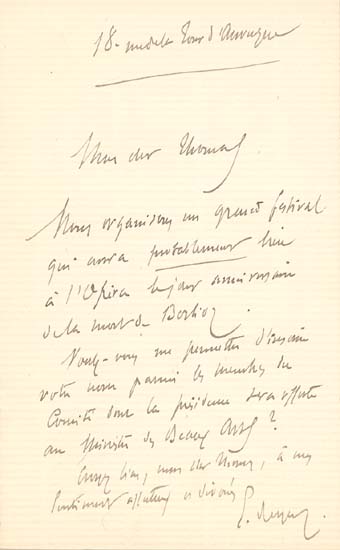 18 rue de la Tour d'Auvergne
Mon cher Thomas
Nous organisons un grand festival
qui aura probablement lieu
à l'Opéra le jour anniversaire
de la mort de Berlioz.
Voulez-vous me permettre d'inscrire
votre nom parmi les membres du
Comité dont la présidence sera offerte
au Ministre des Beaux Arts ?
Croyez bien, mon cher Thomas, à mes
sentiments affectueux et dévoués
E. Reyer